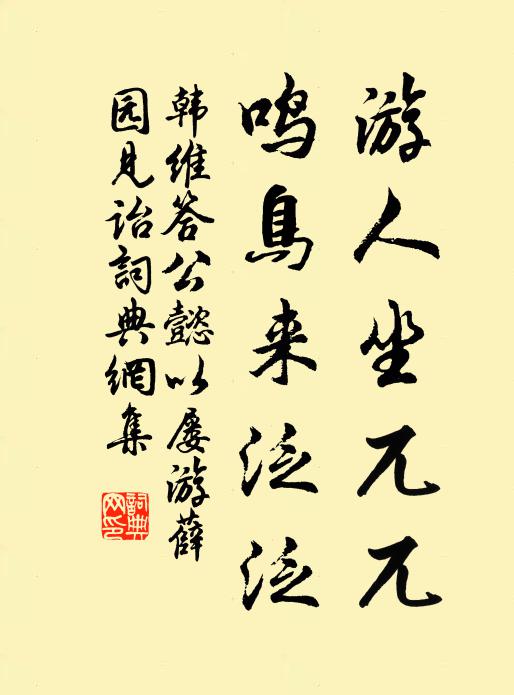 游人坐兀兀
鸣鳥来泛泛
韩维答公懿以屡游薛
园見诒詞典網集
詞典
网印